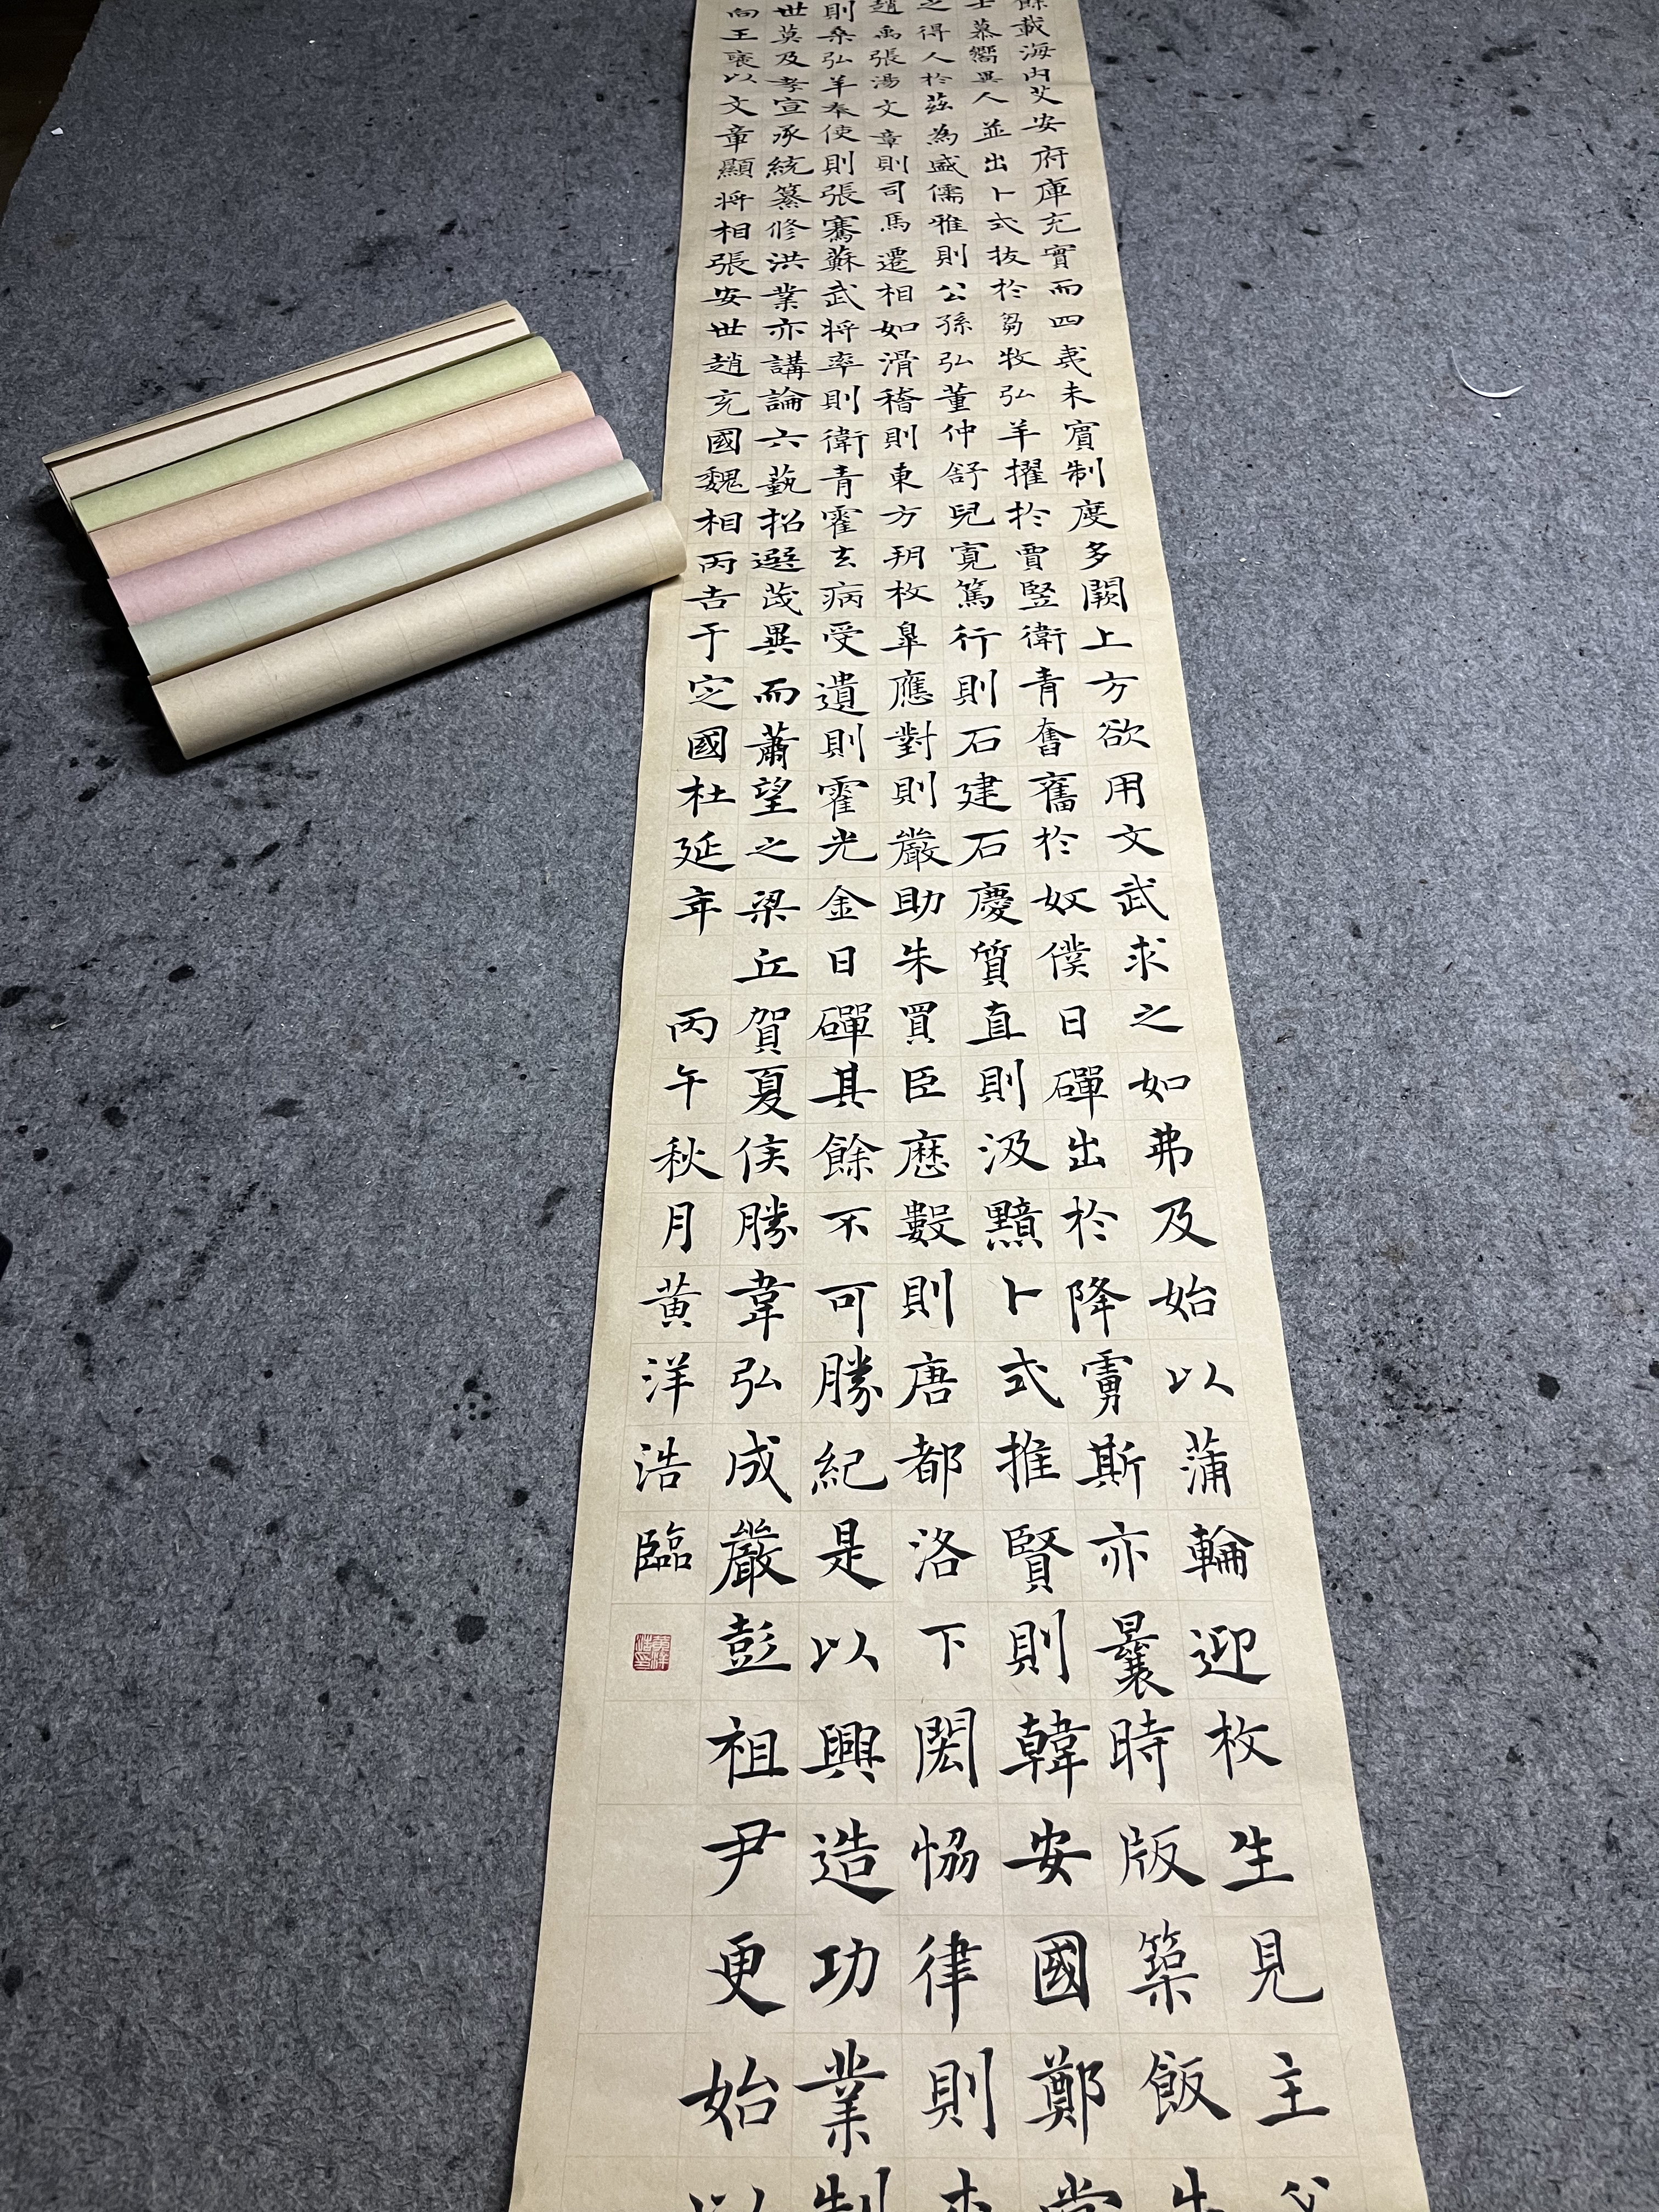 餘載海內艾安府庫充實而四夷未賓制度多闕上方欲用文武求之如弗及始以蒲輪迎枚生見主父
士慕嚮異人並出卜式拔於芻牧弘羊擢於賈豎衛青奮舊於奴僕日磾出於降虜斯亦曩時版築飯牛
之得人於茲為盛儒雅則公孫弘董仲舒兒寬篤行則石建石慶質直則汲黯卜式推賢則韓安國鄭當
趙禹張湯文章則司馬遷相如滑稽則東方朔枚皋應對則嚴助朱買臣歷數則唐都洛下閎恊律則李
則桑弘羊奉使則張騫蘇武將率則衛青霍玄病受遺則霍光金日磾其餘不可勝紀是以興造功業制
世莫及孝宣承統纂修洪業亦講論六藝招選茂異而蕭望之梁丘賀夏侯勝韋弘成嚴彭祖尹更始以
向王褒以文章顯將相張安世趙充國魏相丙吉于定國杜延年 丙午秋月黃洋浩臨